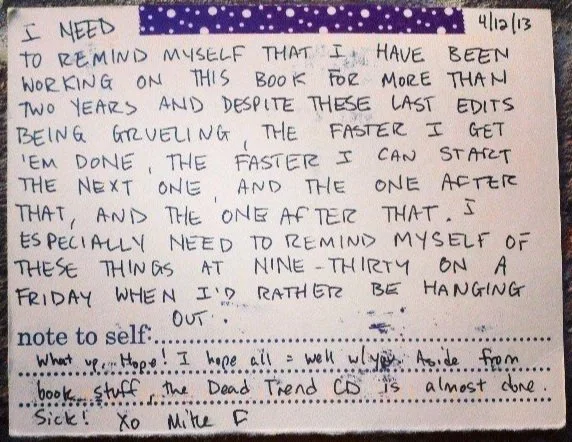 I NEED
4/12/13
TO REMIND MYSELF THAT I HAVE BEEN
WORKING ON THIS BOOK FOR MORE THAN
TWO YEARS AND DESPITE THESE LAST EDITS
BEING GRUELING, THE FASTER I GET
'EM DONE, THE FASTER I CAN START
THE NEXT ONE, AND THE ONE AFTER
THAT, AND THE ONE AFTER THAT. I
ESPECIALLY NEED TO REMIND MYSELF OF
THESE THINGS AT NINE-THIRTY ON A
FRIDAY WHEN I'D RATHER BE HANGING
OUT.
note to self:
What up, Hope! I hope all = well w/ you. Aside from
book stuff, the Dead Trend CD is almost done.
Sick! XO Mike F